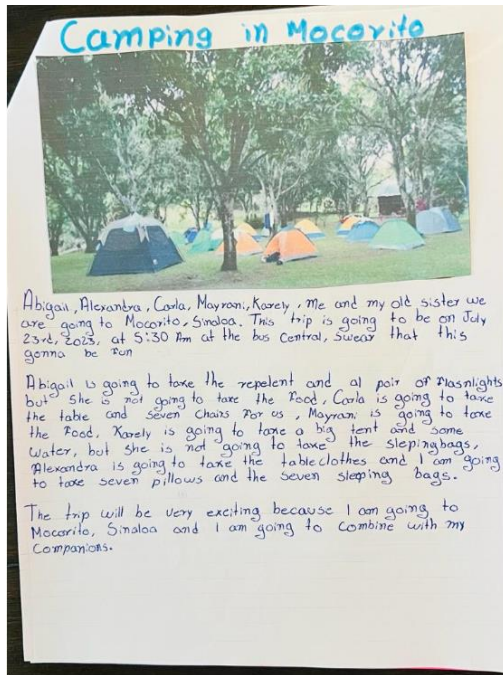 Camping in Mocorito
Abigail, Alexandra, Carla, Mayrani, Karely, me and my old sister we
are going to Mocorito, Sinaloa. This trip is going to be on July
23rd, 2023, at 5:30 Am at the bus Central, Swear that this
gonna be fun
Abigail is going to take the repelent and al pair of flasnlights
but she is not going to take the food, Carla is going to take
the table and seven Chairs For us, Mayrani is going to take
the Food, Karely is going to take a big tent and some
water, but she is not going to take the slepingbags,
Alexandra is going to take the tableclothes and I am going
to take seven pillows and the seven sleeping bags.
The trip will be very exciting because I am going to
Mocorito, Sinaloa and I am going to combine with my
Companions.